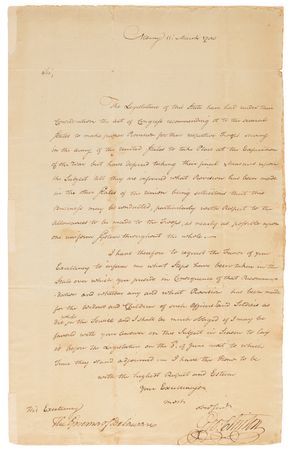 Albany 11 March 17
Sir,
The Legislature of this State have had under their
Consideration the Act of Congress recommending it to the several
States to make proper Provision for their respective Troops serving
in the Army of the United States to take Place at the Expiration
of the War but have defered taking their final Measures upon
the Subject till they are informed what Provision has been made
in the other States of the union being solicitous that this
Business may be conducted, particularly with Respect to the
Allowances to be made to the Troops, as nearly as possible upon
one uniform System throughout the whole.
I have therefore to request the Favor of your
Excellency to inform me what Steps have been taken in the
State over which you preside in Consequence of that Recommen-
dation and whether any and what Provision has been made
for the Widows and Children of such Officers and Soldiers as
die in the Service and I shall be much obliged if I may be
favored with your Answer on this Subject in Season to lay
it before the Legislature on the of June next to which
Time they stand adjourned. I have the Honor to be
with the highest Respect and Esteem
your Excellency's
most
Obedt
His Excellency
The Governor of Delaware
Geo Clinton